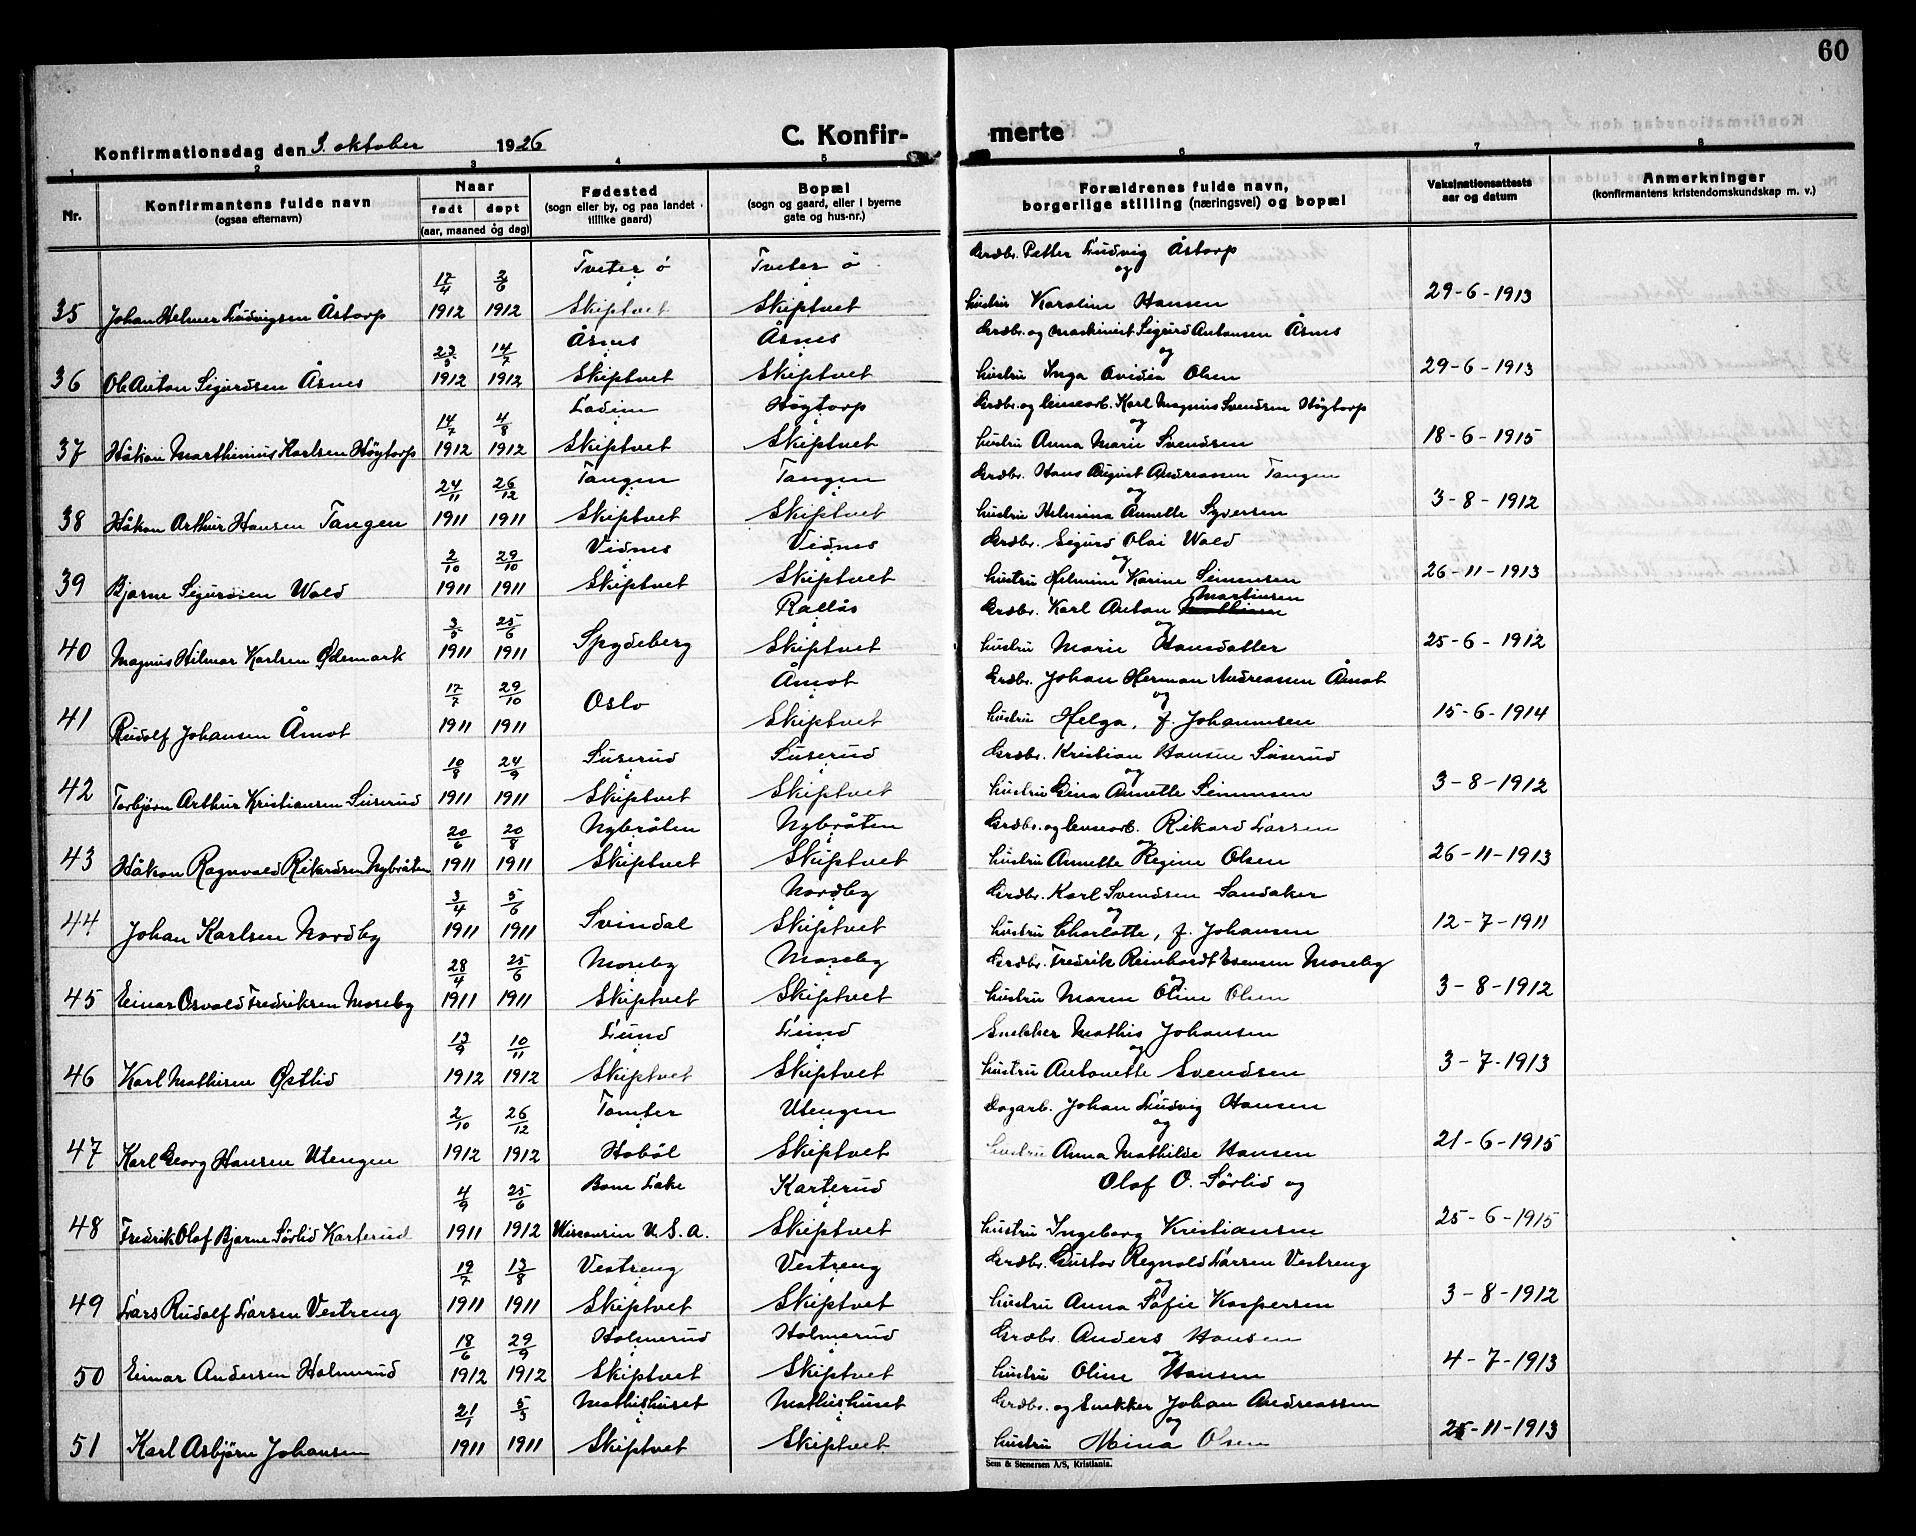 60
Konfirmationsdag den 3. oktober 1926
C. Konfir-
merte
1 2 3 4 5 6 7 8
Nr.
Konfirmantens fulde navn
(ogsaa efternavn)
Naar
født døpt
(aar, maaned og dag)
Fødested
(sogn eller by, og paa landet
tillike gaard)
Bopæl
(sogn og gaard, eller i byerne
gate og hus-nr.)
Forældrenes fulde navn,
borgerlige stilling (næringsvei) og bopæl
Vaksinationsattests
aar og datum
Anmerkninger
(konfirmantens kristendomskundskap m. v.)
Tveter ø Tveter ø Grdbr. Petter Ludvig Åstorp
17/4 2/6 og
35 Johan Helmer Ludvigsen Åstorp 1912 1912 Skiptvet Skiptvet hustru Karoline Hansen 29-6-1913
Åsnes Åsnes Grdbr. og maskinist Sigurd Antonsen Åsnes
14/7 og
36 Ole Anton Sigurdsen Åsnes 1912 1912 Skiptvet Skiptvet hustru Inga Ovidia Olsen 29-6-1913
Ladim Høgtorp Grdbr. og Karl Magnus Svendsen Høgtorp
14/7 4/8 og
37 Håkon Marthinius Karlsen Høytorp 1912 1912 Skiptvet Skiptvet hustru Anna Marie Svendsen 18-6-1915
Tangen Tangen Grdbr. Hans August Andreassen Tangen
24/11 26/12 og
38 Håkon Arthur Hansen Tangen 1911 1911 Skiptvet Skiptvet hustru Helmina Annette Syversen 3-8-1912
Vidnes Vidnes Grdbr. Sigurd Olai Wold
2/10 29/10 og
39 Bjarne Sigurdsen Wold 1911 1911 Skiptvet Skiptvet hustru Helmine Karine Simensen 26-11-1913
Rallås Grdbr. Karl Anton Mathisen Martinsen
3/5 25/6 og
40 Magnus Hilmar Karlsen Ødemark 1911 1911 Spydeberg Skiptvet hustru Marie Hansdatter 25-6-1912
Åmot Grdbr. Johan Herman Andreassen Åmot
17/7 29/10 Oslo og
41 Rudolf Johansen Åmot 1911 1911 Skiptvet hustru Helga, f. Johannesen 15-6-1914
Suserud Suserud Grdbr. Kristian Hansen Suserud
10/8 24/9 og
42 Torbjørn Arthur Kristiansen Suserud 1911 1911 Skiptvet Skiptvet hustru Gina Annette Simensen 3-8-1912
Nybråten Nybråten Grdbr. og Rikard Larsen
20/6 20/8 og
43 Håkon Ragnvald Rikardsen Nybråten 1911 1911 Skiptvet Skiptvet hustru Annette Regine Olsen 26-11-1913
Nordby Grdbr. Karl Svendsen Sandaker
3/4 5/6 og
44 Johan Karlsen Nordby 1911 1911 Svindal Skiptvet hustru Charlotte, f. Johansen 12-7-1911
Moseby Moseby Grdbr. Fredrik Reinhardt Evensen Moseby
28/4 25/6 og
45 Einar Osvald Fredriksen Moseby 1911 1911 Skiptvet Skiptvet hustru Maren Oline Olsen 3-8-1912
Lund Lund Snekker Mathis Johansen
13/9 10/11 og
46 Karl Mathisen Østlid 1912 1912 Skiptvet Skiptvet hustru Antonette Svendsen 3-7-1913
Tomter Utengen Dagarb. Johan Ludvig Hansen
2/10 26/12 og
47 Karl Georg Hansen Utengen 1912 1912 Hobøl Skiptvet hustru Anna Mathilde Hansen 21-6-1915
Bone Lake Karterud Olaf O. Sørlid og
4/9 25/6
48 Fredrik Olaf Bjarne Sørlid Karterud 1911 1912 Wisconsin U.S.A. Skiptvet hustru Ingeborg Kristiansen 25-6-1915
Vestreng Vestreng Grdbr. Gustav Regnald Larsen Vestreng
19/7 13/8 og
49 Lars Rudolf Larsen Vestreng 1911 1911 Skiptvet Skiptvet hustru Anna Sofie Kaspersen 3-8-1912
Holmerud Holmerud Grdbr. Anders Hansen
18/6 29/9 og
50 Einar Andersen Holmerud 1912 1912 Skiptvet Skiptvet hustru Oline Hansen 4-7-1913
Mathishuset Mathishuset Grdbr. og Snekker Johan Andreassen
21/1 5/3 og
51 Karl Asbjørn Johansen 1911 1911 Skiptvet Skiptvet hustru Mina Olsen 25-11-1913
Sem & Stenersen A/S, Kristiania.